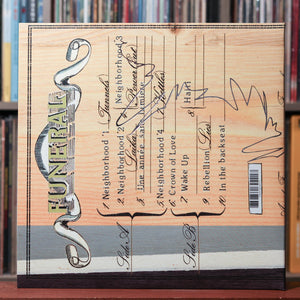 FUNERAL
1 Neighborhood 1 Tunnels
2. Neighborhood 2 Laika
3. Une année sans lumière
4 Neighborhood 3 Power Out
5. Neighborhood 4 Kettles
6 Crown of Love
7 Wake Up
8 Haiti
9. Rebellion Lies
10. In the backseat
Side A
Side B